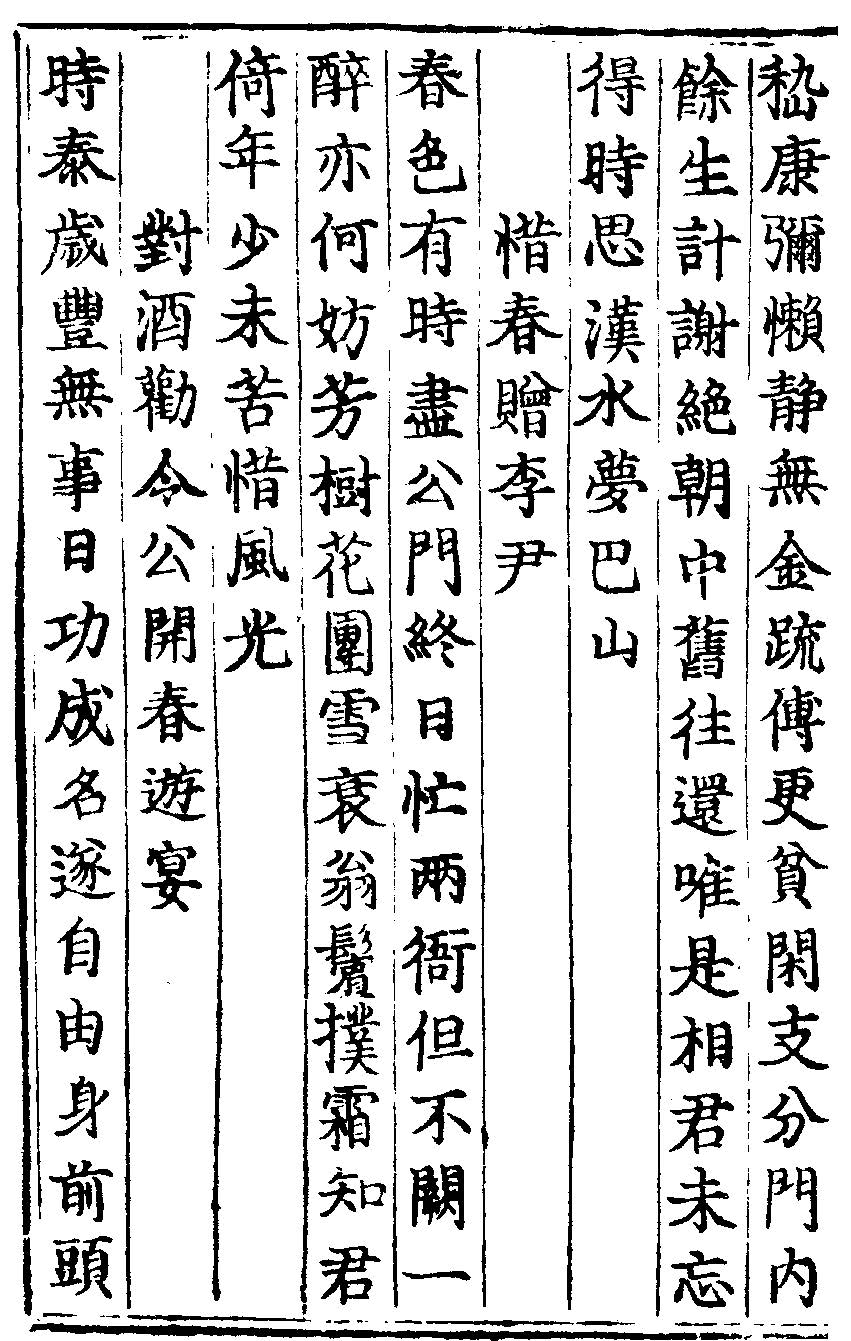 嵇康彌懶静無金疏傅更貧閑支分門内
餘生計謝絶朝中舊往還唯是相君未忘
得時思漢水夢巴山
惜春贈李尹
春色有時盡公門終日忙兩衙但不闕一
醉亦何妨芳樹花團雪衰翁鬢撲霜知君
倚年少未苦惜風光
對酒勸令公開春遊宴
時泰歲豐無事日功成名遂自由身前頭